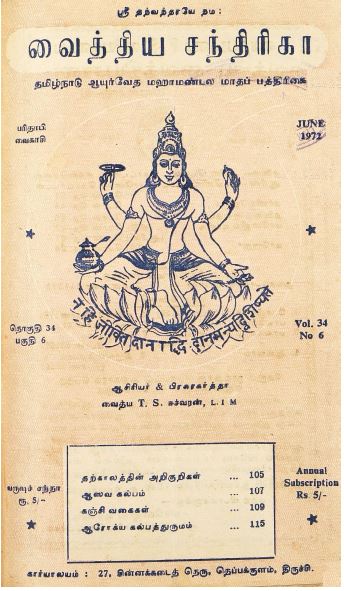 ஸ்ரீ தந்வந்தரயே நம:
வைத்திய சந்திரிகா
தமிழ்நாடு ஆயுர்வேத மஹாமண்டல மாதப் பத்திரிகை
பரிதாபி
வைகாசி
JUNE
1972
नहि जीवितदानाद्धि दानमन्यद्विशिष्यते
தொகுதி 34
பகுதி 6
Vol. 34
No 6
ஆசிரியர் & பிரசுரகர்த்தா
வைத்ய T. S. ஈச்வரன், L. I M
வருஷச் சந்தா
ரூ. 5/-
தற்காலத்தின் அறிகுறிகள் ... 105
ஆஸவ கல்பம் ... 107
கஞ்சி வகைகள் ... 109
ஆரோக்ய கல்பத்துருமம் ... 115
Annual
Subscription
Rs 5/-
கார்யாலயம் : 27, சின்னக்கடைத் தெரு, தெப்பக்குளம், திருச்சி.